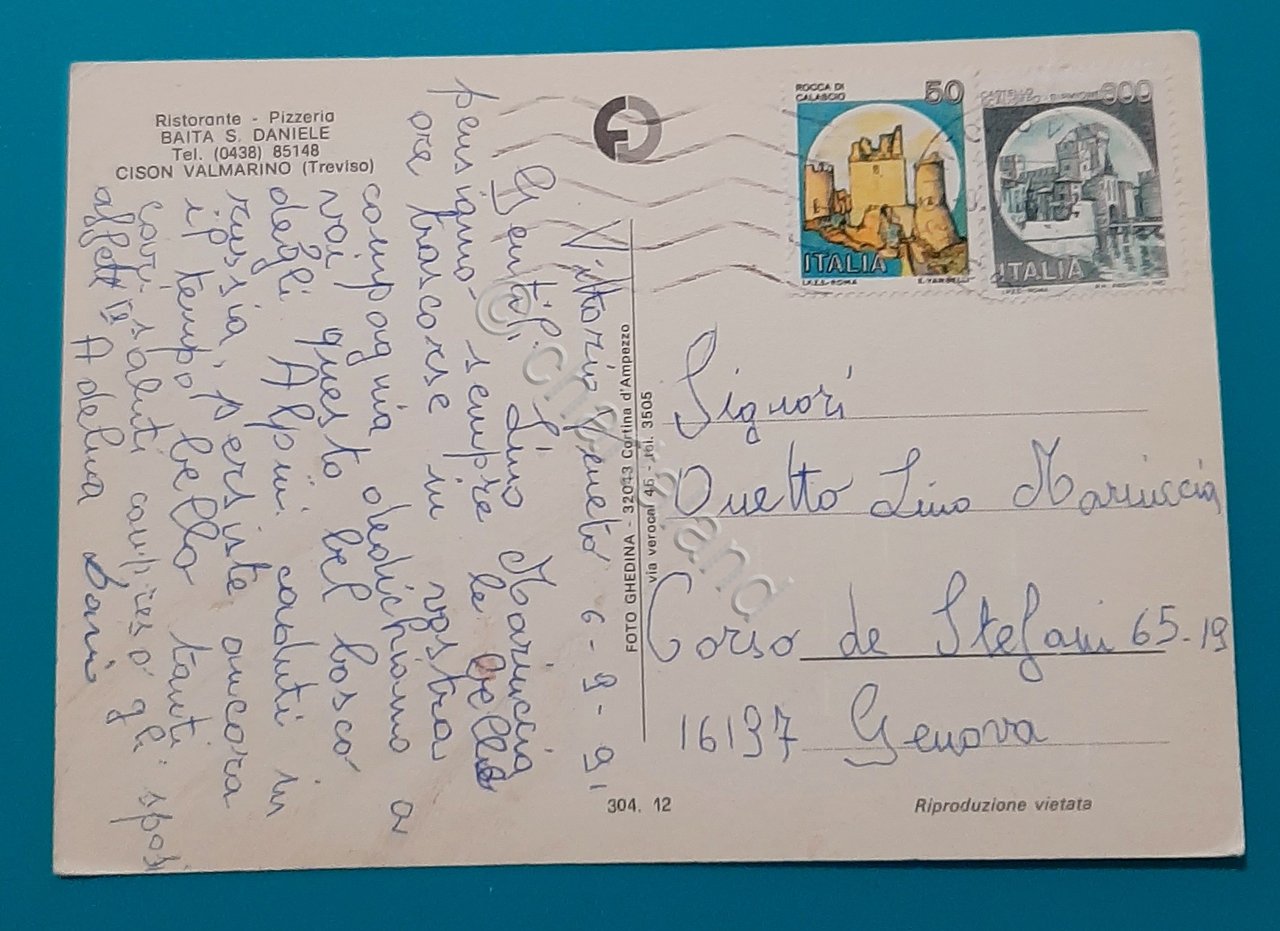 Ristorante - Pizzeria
BAITA S. DANIELE
Tel. (0438) 85148
CISON VALMARINO (Treviso)
Vittorio Veneto 6-9-91
Gentil. Lino Mariuccia
pensiamo sempre le belle
ore trascorse in vostra
compagnia dedichiamo a
voi questo bel bosco
degli Alpini caduti in
russia, persiste ancora
il tempo bello tanti
cari saluti compreso gli sposi
affett
Adelina
FOTO GHEDINA - 32043 Cortina d'Ampezzo
via verocai 45 - tel. 3505
304. 12
ROCCA DI
CALASCIO
50
ITALIA
I.P.Z.S.-ROMA
CASTELLO
600
ITALIA
I.P.Z.S.-ROMA
Signori
Ouetto Lino Mariuccia
Corso de Stefani 65-19
16137 Genova
Riproduzione vietata
© chartaland